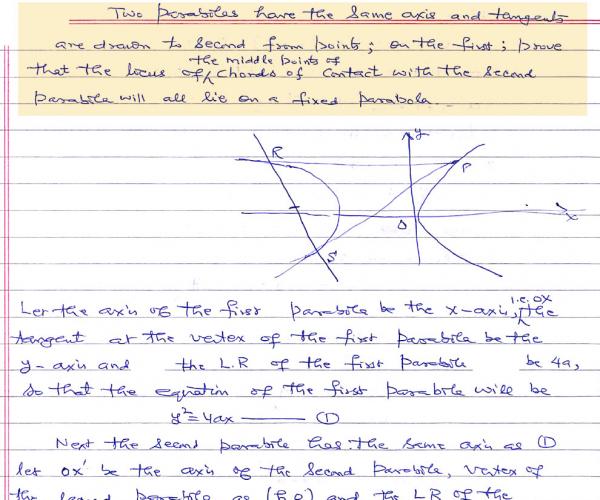 Two parabolas have the same axis and tangents
are drawn to second from points; on the first; prove
the middle points of
that the locus of chords of contact with the second
parabola will all lie on a fixed parabola.
y
R
P
O
x
S
Let the axis of the first parabola be the x-axis, i.e. OX the
tangent at the vertex of the first parabola be the
y-axis and the L.R of the first parabola be 4a,
so that the equation of the first parabola will be
y²=4ax ——— ①
Next the second parabola has the same axis as ①
let OX' be the axis of the second parabola, vertex of
the second parabola as and the LR of the